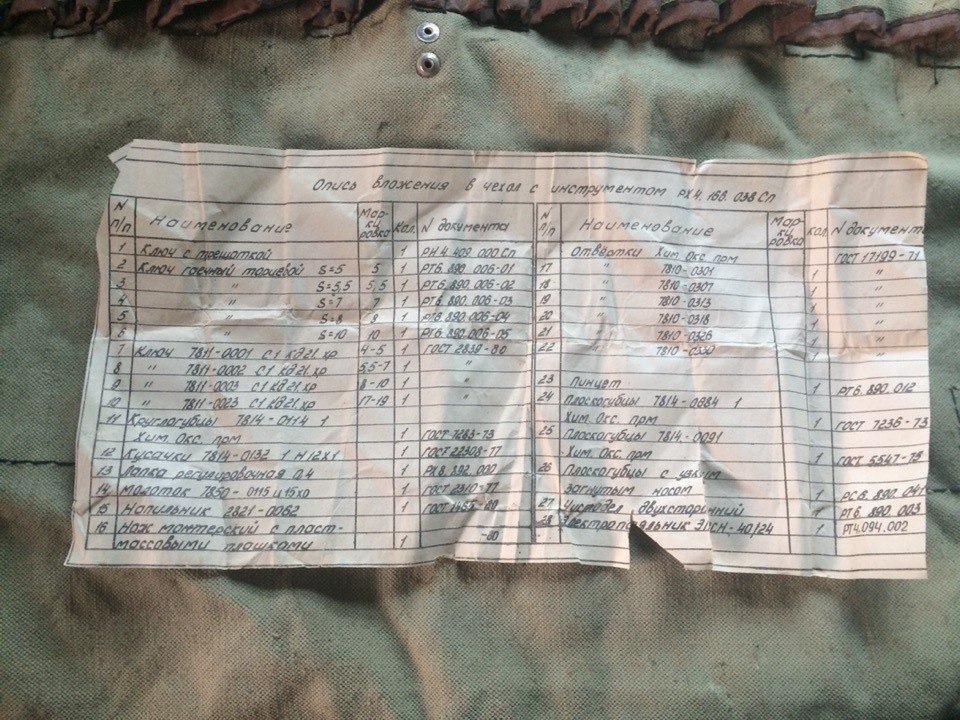 Опись вложения в чехол с инструментом РХ4.168.038Сп
N п/п Наименование Маркировка Кол. N документа
1 Ключ с трещоткой 1 РН4.409.000Сп
2 Ключ гаечный торцевой S=5 5 1 РТ6.890.006-01
3 " S=5,5 5,5 1 РТ6.890.006-02
4 " S=7 7 1 РТ6.890.006-03
5 " S=8 8 1 РТ6.890.006-04
6 " S=10 10 1 РТ6.890.006-05
7 Ключ 7811-0001 С1 КД21.хр 4-5 1 ГОСТ 2839-80
8 " 7811-0002 С1 КД21.хр 5,5-7 1 "
9 " 7811-0003 С1 КД21.хр 8-10 1 "
10 " 7811-0023 С1 КД21.хр 17-19 1 "
11 Круглогубцы 7814-0114 1
Хим. Окс. прм 1 ГОСТ 7283-73
12 Кусачки 7814-0132 1 Н12Х1 1 ГОСТ 22308-77
13 Лапка регулировочная 0.4 1 РХ8.892.000
14 Молоток 7850-0115 Ц15хр 1 ГОСТ 2310-77
15 Напильник 2821-0062 1 ГОСТ
16 Нож монтерский с пласт-
массовыми плашками 1 -80
N п/п Наименование Маркировка Кол. N документа
Отвертки Хим. Окс. прм ГОСТ 17199-71
17 " 7810-0301 1 "
18 " 7810-0307 1 "
19 " 7810-0313 1 "
20 " 7810-0318 1 "
21 " 7810-0326 1 "
22 " 7810-0330 1 "
23 Пинцет 1 РТ6.890.012
24 Плоскогубцы 7814-0084 1
Хим. Окс. прм 1 ГОСТ 7236-73
25 Плоскогубцы 7814-0091
Хим. Окс. прм 1 ГОСТ 5547-75
26 Плоскогубцы с узким
загнутым носом 1 РС6.890.041
27 двухсторонний 1 РТ6.890.003
28 Электропаяльник ЭПСН-40/24 1 РТ4.094.002